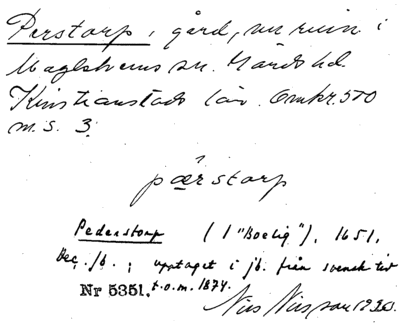 Perstorp, gård, nu ruin i
Maglehems sn. Gärds hd.
Kristianstads län. Omkr. 500
m. S. 3.
pärstorp
Pederstorp (1 "Boelig"), 1651,
Dec. jb.; upptaget i jb. från svensk tid
Nr 5351. t.o.m. 1874.
Nils Nilsson